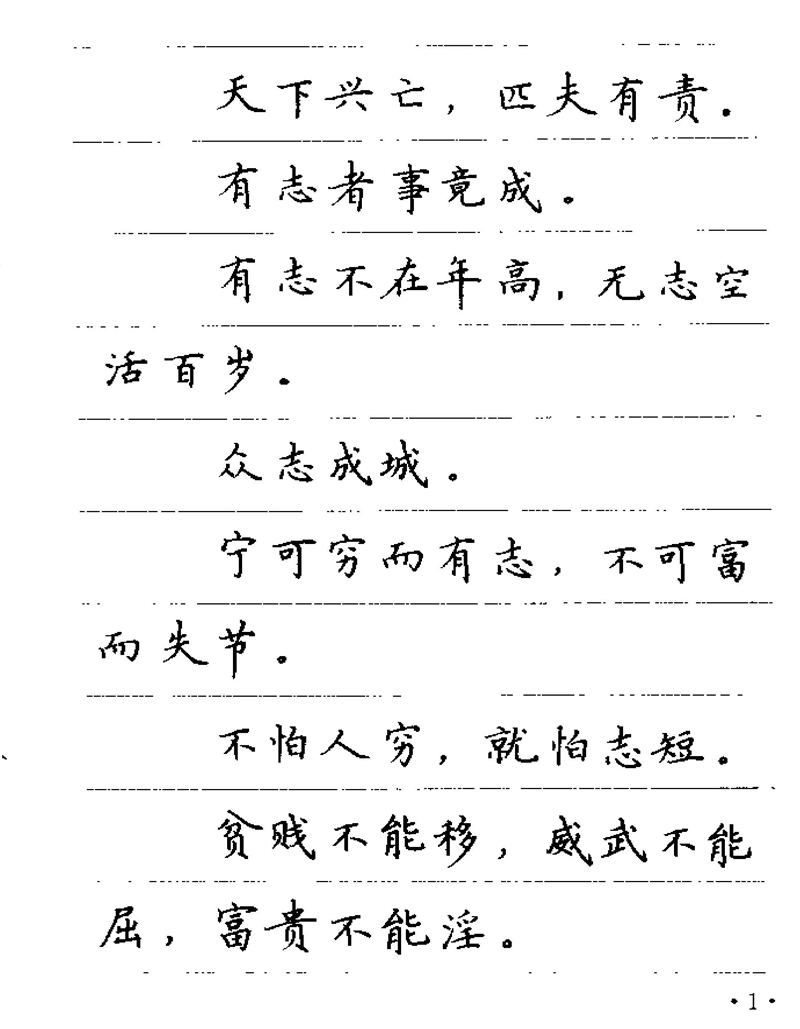 天下兴亡，匹夫有责．
有志者事竟成．
有志不在年高，无志空
活百岁．
众志成城．
宁可穷而有志，不可富
而失节。
不怕人穷，就怕志短。
贫贱不能移，威武不能
屈，富贵不能淫。
·1·